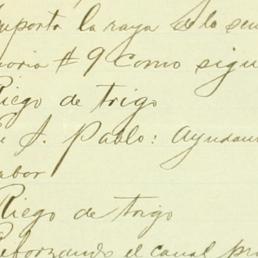 mporta la raya de la sem
noria # 9 Como sigu
Riego de trigo
e J. Pablo: Ayudan
abor
Riego de trigo
Reforzando el canal pr